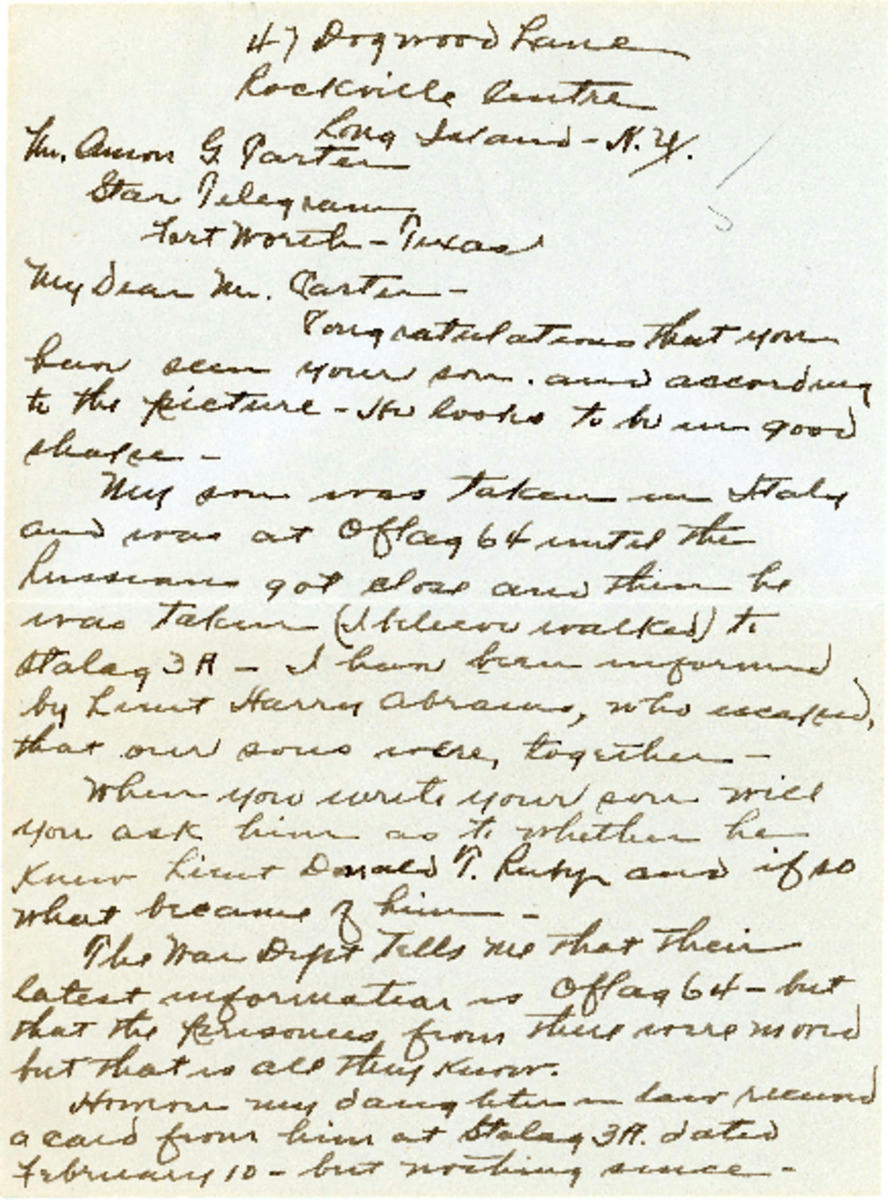 47 Dogwood Lane
Rockville Centre
Long Island - N.Y.
Mr. Amon G. Carter
Star Telegram
Fort Worth - Texas
My Dear Mr. Carter -
Congratulations that you
have seen your son. and according
to the picture - He looks to be in good
shape -
My son was taken in Italy
and was at Oflag 64 until the
Russians got close and then he
was taken (I believe walked) to
Stalag 3A - I have been informed
by Lieut Harry Abrams, who escaped,
that our sons were, together -
When you write your son will
you ask him as to whether he
knew Lieut Donald T. and if so
what became of him -
The War Dept tells me that their
latest information is Oflag 64 - but
that the prisoners from there were moved
but that is all they know.
However my daughter in law received
a card from him at Stalag 3A. dated
February 10 - but nothing since -